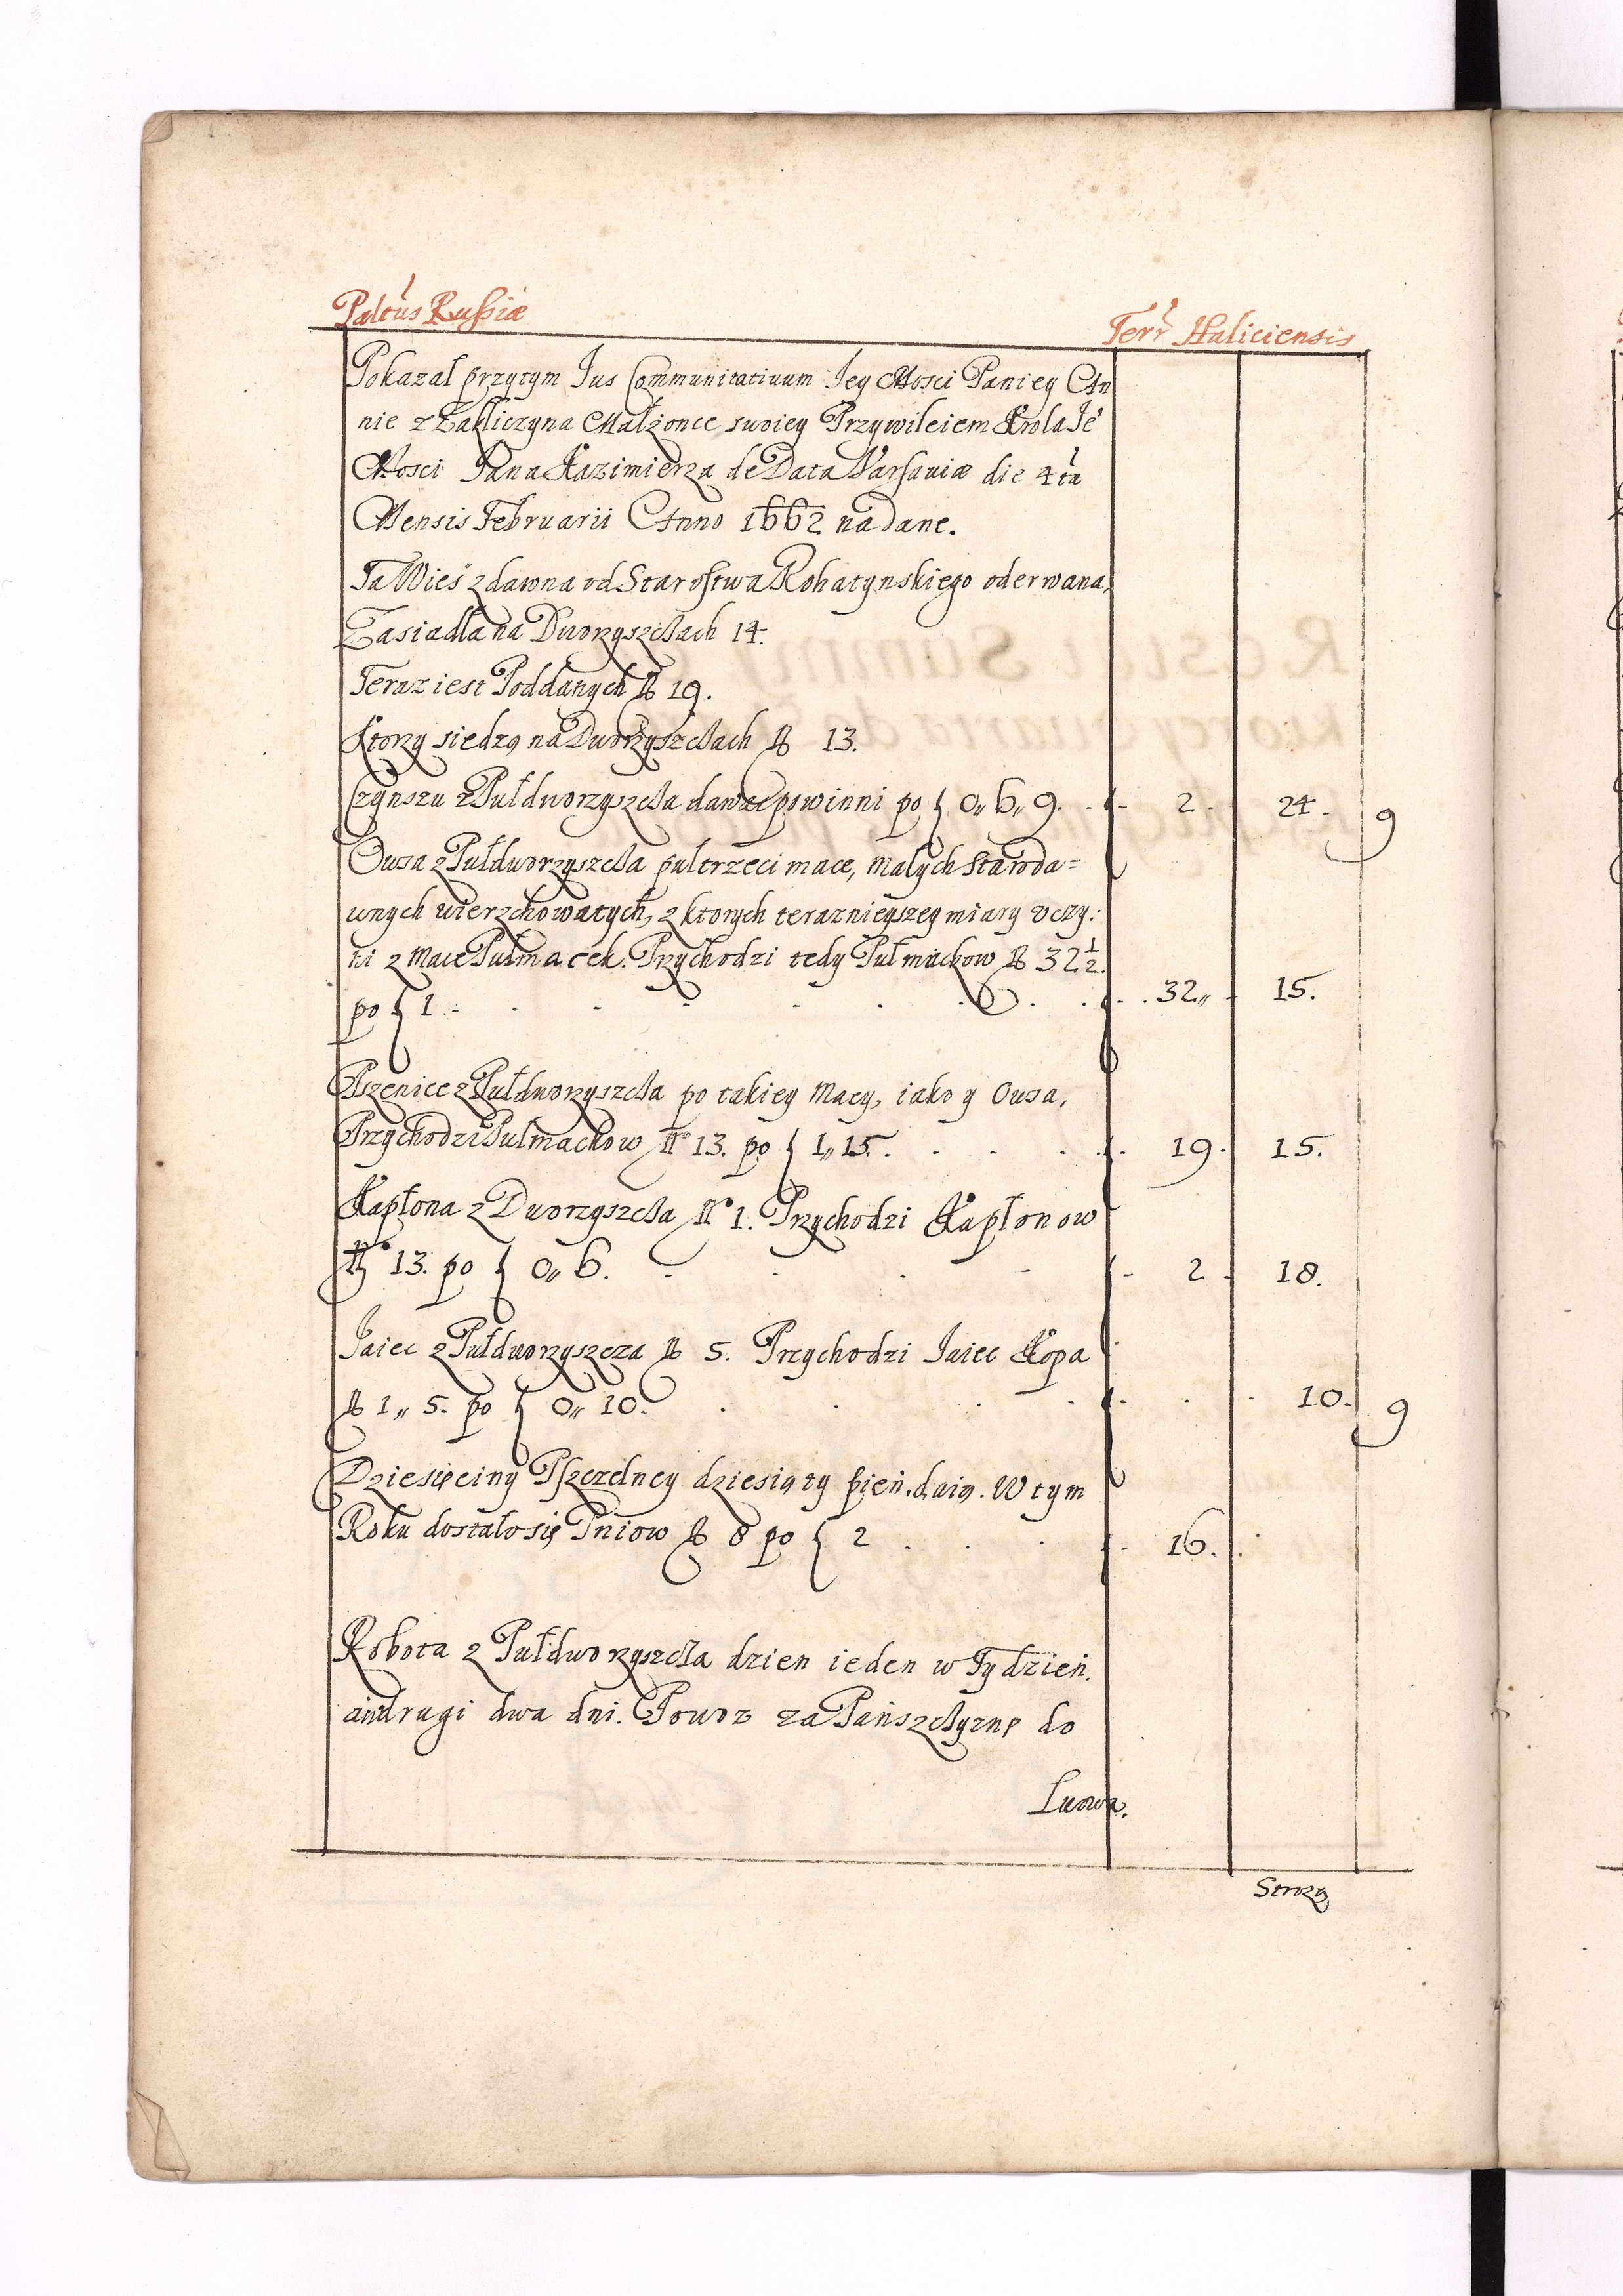 Paltus Russiæ
Terr Haliciensis
Pokazal przytym Jus Communitatiuum Jey Mosci Paniey An
nie z Zakliczyna Małżonce swoiey Przywileiem Krola Je
Mosci Jana Kazimierza de Data Varsauiæ die 4ta
Mensis Februarii Anno 1662 nadane.
Ta Wieś zdawna od Starostwa Rohatynskiego oderwana,
Zasiadła na Dworzyszczach 14.
Teraz iest Poddanych No 19.
Ktorzy siedzą na Dworzyszczach No 13.
Czynszu z Pułdworzyszcza dawać powinni po f 0„ 6„ 9. 2. 24. 9
Owsa z Pułdworzyszcza pułtrzeci mace, małych staroda=
wnych wierzchowatych, z ktorych teraznieyszey miary vczy.
ni z Mace Pułmacek. Przychodzi tedy Pułmackow No 32 1/2.
po f 1 32„ 15.
Pszenice z Pułdworzyszcza po takiey Macy, iako y Owsa,
Przychodzi Pułmackow No 13. po f 1„ 15. 19. 15.
Kapłona z Dworzyszcza No 1. Przychodzi Kapłonow
No 13. po f 0„ 6. 2 18.
Jaiec z Pułdworzyszcza No 5. Przychodzi Jaiec Kopa
No 1„ 5. po f 0„ 10. 10. 9
Dziesięciny Pszczelney dziesiąty pień daią. W tym
Roku dostało się Pniow No 8 po f 2 16.
Robota z Pułdworzyszcza dzien ieden w Tydzień.
a w drugi dwa dni. Powoz za Pańszczyznę do
Lwowa.
Strozą